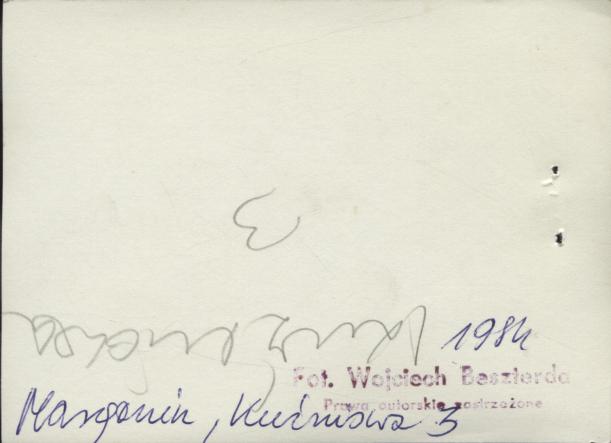 3
1984
Fot. Wojciech Beszterda
Prawa autorskie zastrzeżone
Margonin, Kuźnicza 3